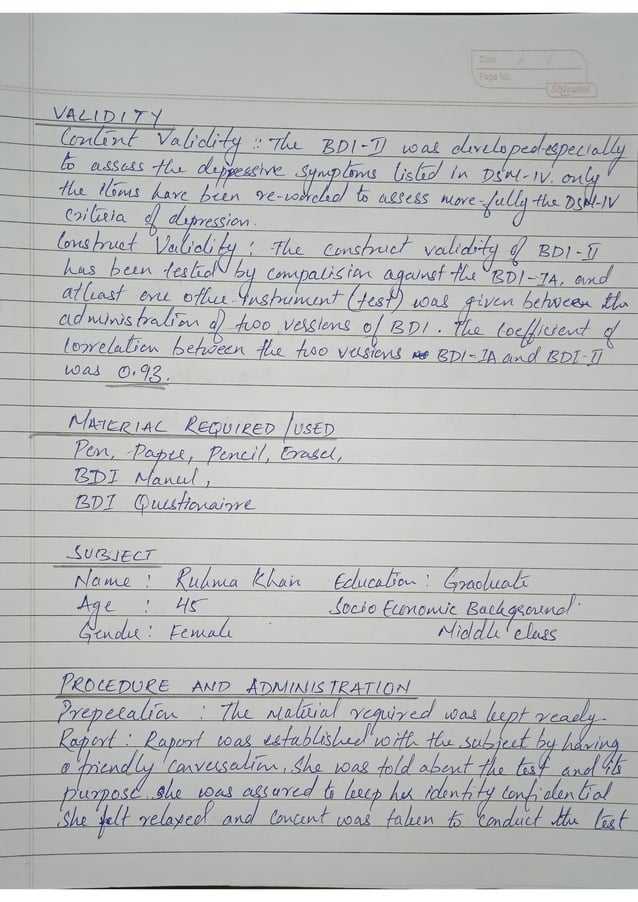 Date / /
Page No.
Shivalal
VALIDITY
Content Validity :: The BDI-II was developed especially
to assess the depressive symptoms listed in DSM-IV. only
the items have been re-worded to assess more fully the DSM-IV
criteria of depression.
Construct Validity : The construct validity of BDI-II
has been tested by compalision against the BDI-IA, and
atleast one other instrument (test) was given between the
administration of two versions of BDI. The Coefficient of
Correlation between the two versions BDI-IA and BDI-II
was 0.93.
MATERIAL REQUIRED / USED
Pen, Paper, Pencil, Eraser,
BDI Manuel,
BDI Questionairre
SUBJECT
Name : Ruhma Khan Education : Graduate
Age : 45 Socio Economic Background.
Gender : Female Middle class
PROCEDURE AND ADMINISTRATION
Preperation : The Material required was kept ready.
Raport : Raport was established with the subject by having
a friendly conversation. She was told about the test and its
purpose. she was assured to keep her identity confidential
She felt relaxed and concent was taken to conduct the test